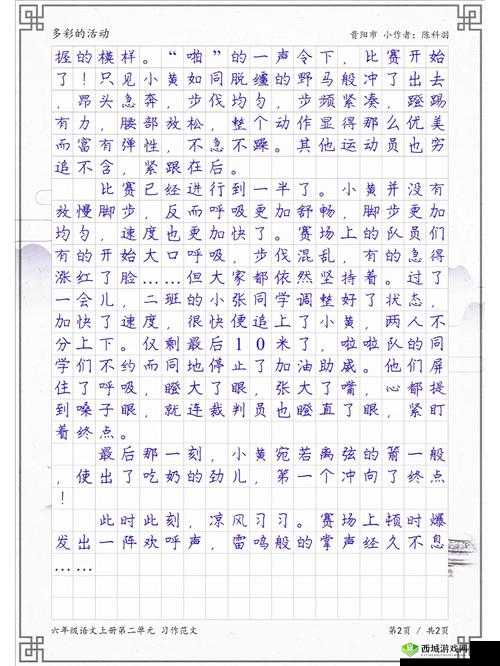 多彩的活动
昔阳市 小作者：陈科羽
握的模样。“啪”的一声令下，比赛开始
了！只见小黄如同脱缰的野马般冲了出去
，昂头急奔，步伐均匀，步频紧凑，蹬踢
有力，腰部放松，整个动作显得那么优美
而富有弹性，不急不躁。其他运动员也穷
追不舍，紧跟在后。
比赛已经进行到一半了。小黄并没有
放慢脚步，反而呼吸更加舒畅，脚步更加
均匀，速度也更加快了。赛场上的队员们
有的开始大口呼吸，步伐混乱，有的急得
涨红了脸……但大家都依然坚持着。过了
一会儿，二班的小张同学调整好了状态，
加快了速度，很快便追上了小黄，两人不
分上下。仅剩最后10米了，啦啦队的同
学们不约而同地停止了加油助威。他们屏
住了呼吸，瞪大了眼，张大了嘴，心都提
到嗓子眼，就连裁判员也瞪直了眼，紧盯
着终点。
最后那一刻，小黄宛若离弦的箭一般
，使出了吃奶的劲儿，第一个冲向了终点
！
此时此刻，凉风习习。赛场上顿时爆
发出一阵欢呼声，雷鸣般的掌声经久不息
……
六年级语文上册第二单元 习作范文
第2页 / 共2页
西城游戏网